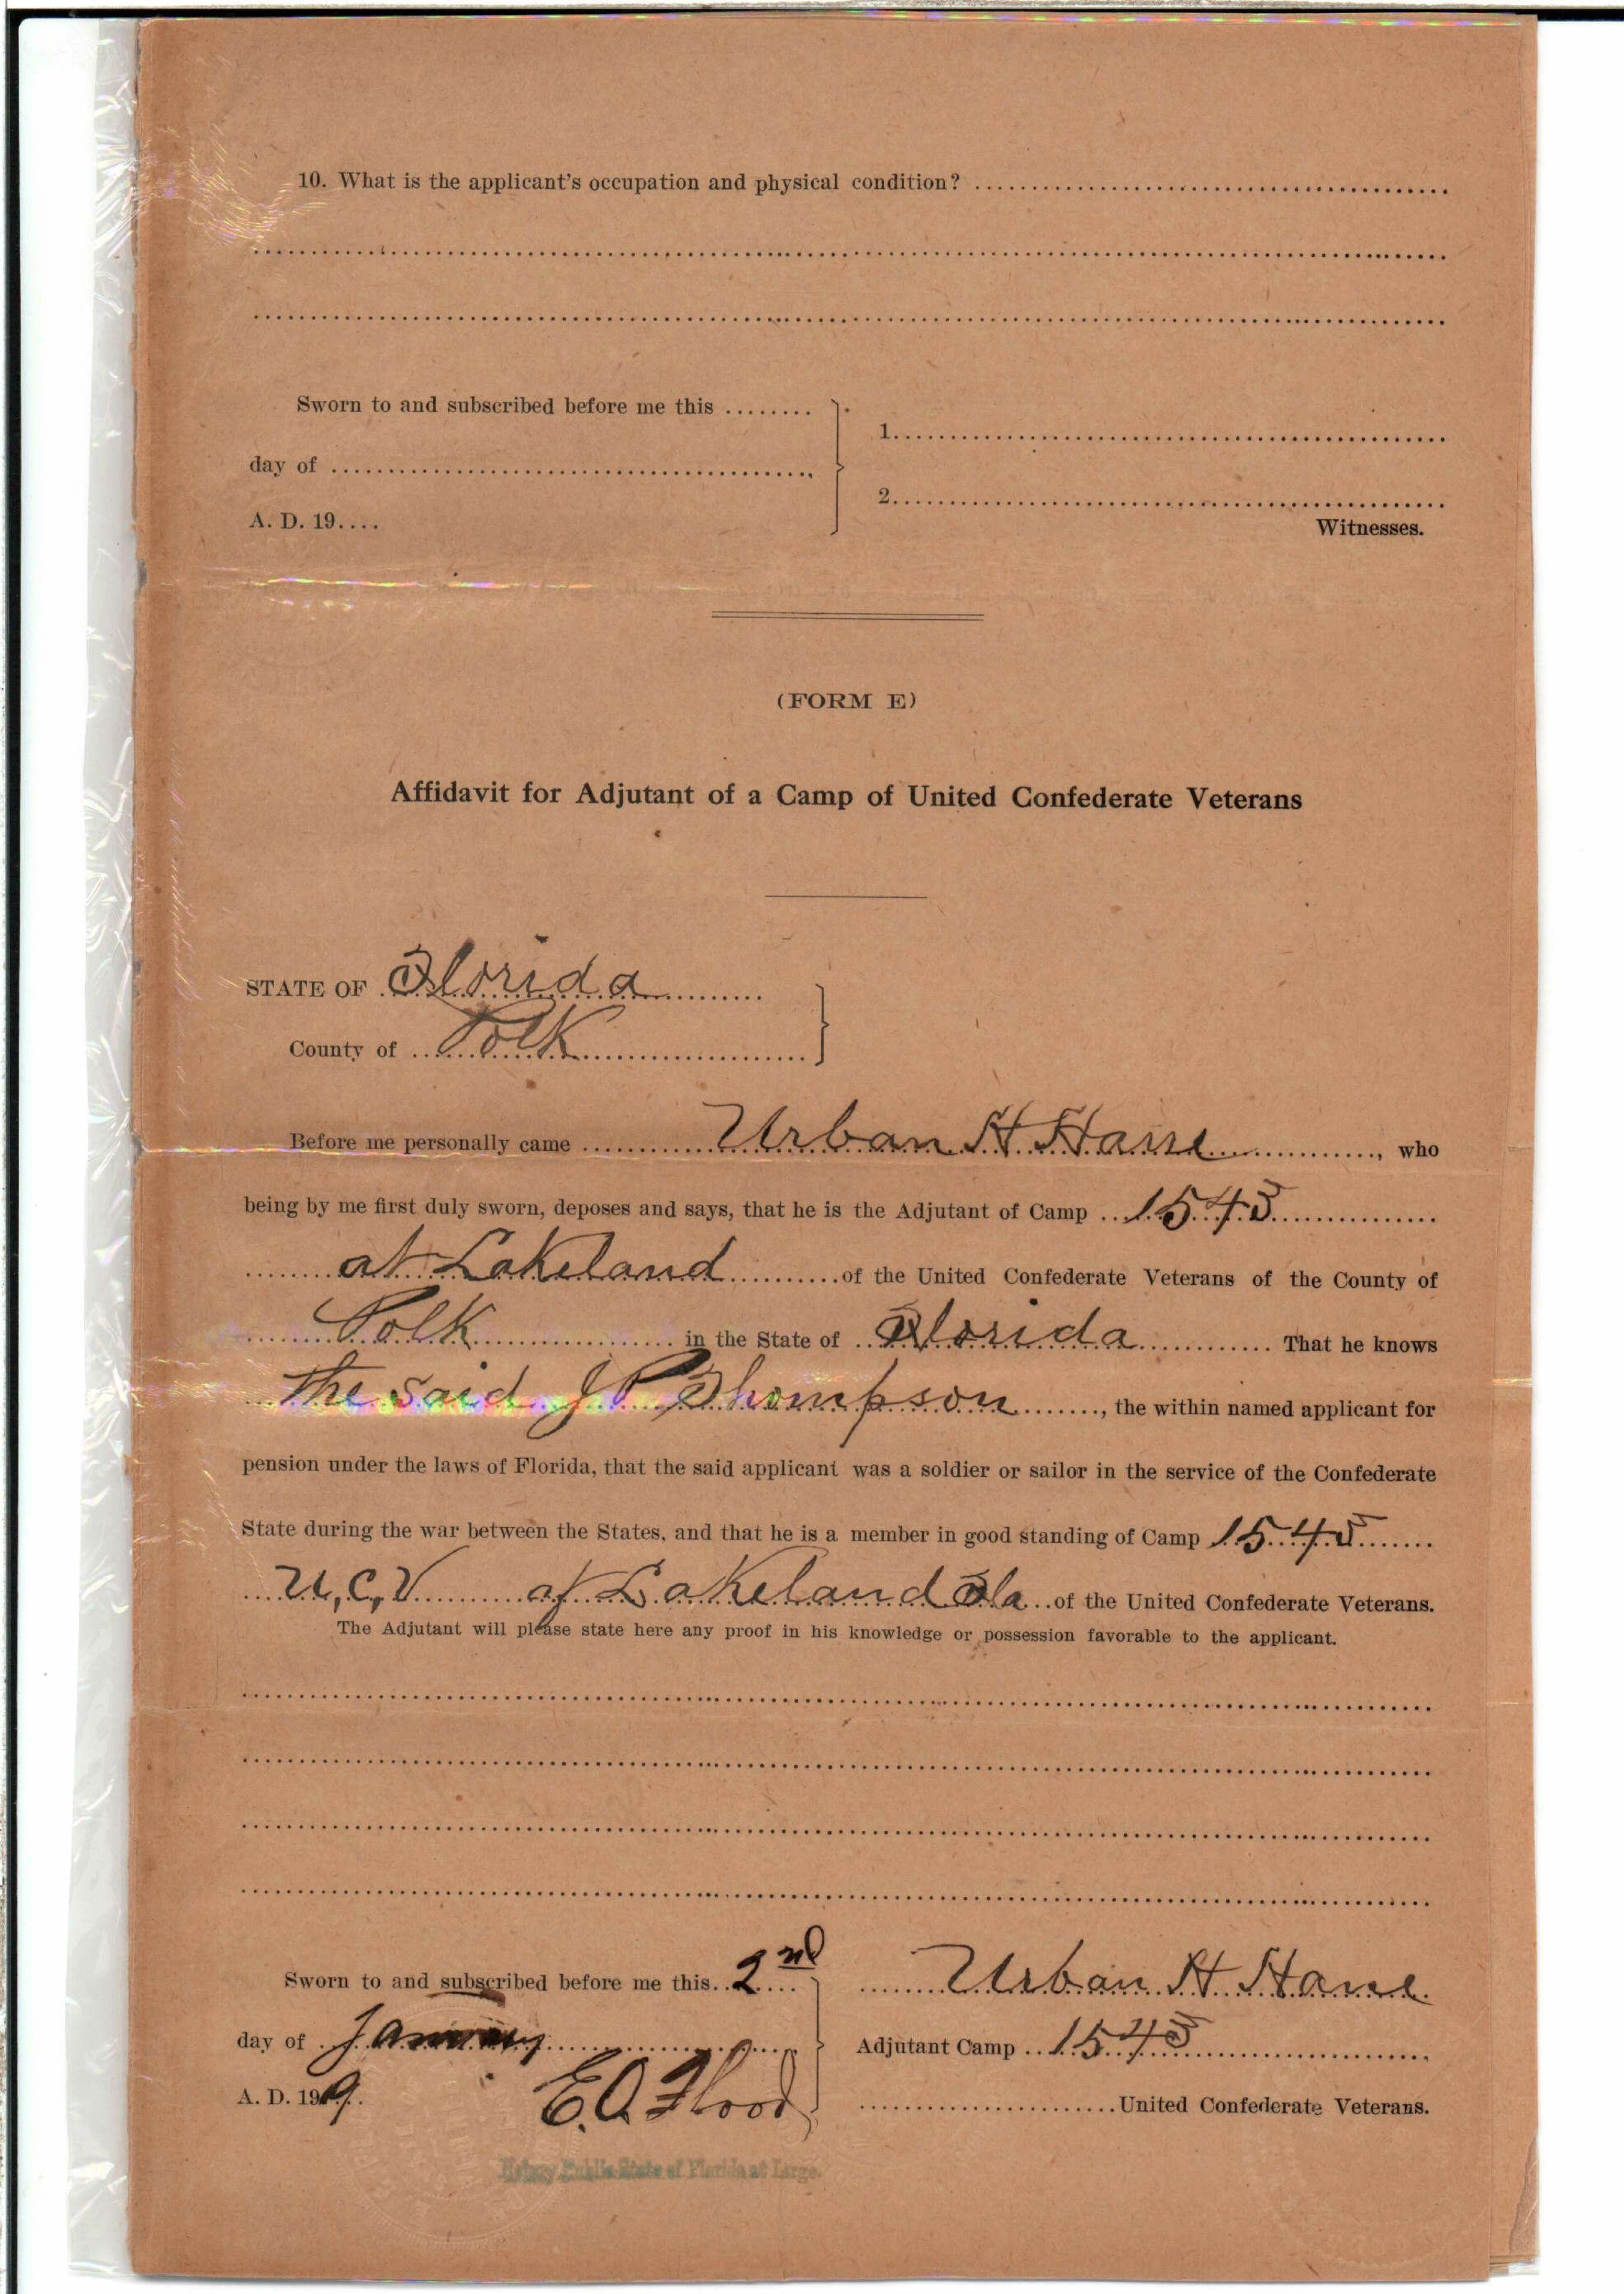 10. What is the applicant's occupation and physical condition? ........
Sworn to and subscribed before me this ........
day of ........
A. D. 19....
1........
2........
Witnesses.
(FORM E)
Affidavit for Adjutant of a Camp of United Confederate Veterans
STATE OF Florida
County of Polk
Before me personally came Urban H. Hane, who
being by me first duly sworn, deposes and says, that he is the Adjutant of Camp 1543
at Lakeland of the United Confederate Veterans of the County of
Polk in the State of Florida That he knows
The said J P Thompson, the within named applicant for
pension under the laws of Florida, that the said applicant was a soldier or sailor in the service of the Confederate
State during the war between the States, and that he is a member in good standing of Camp 1543
U, C, V at Lakeland Fla of the United Confederate Veterans.
The Adjutant will please state here any proof in his knowledge or possession favorable to the applicant.
Sworn to and subscribed before me this 2nd
Urban H. Hane
day of January
Adjutant Camp 1543
A. D. 1909.
E. O. Flood
United Confederate Veterans.
Notary Public State of Florida at Large.